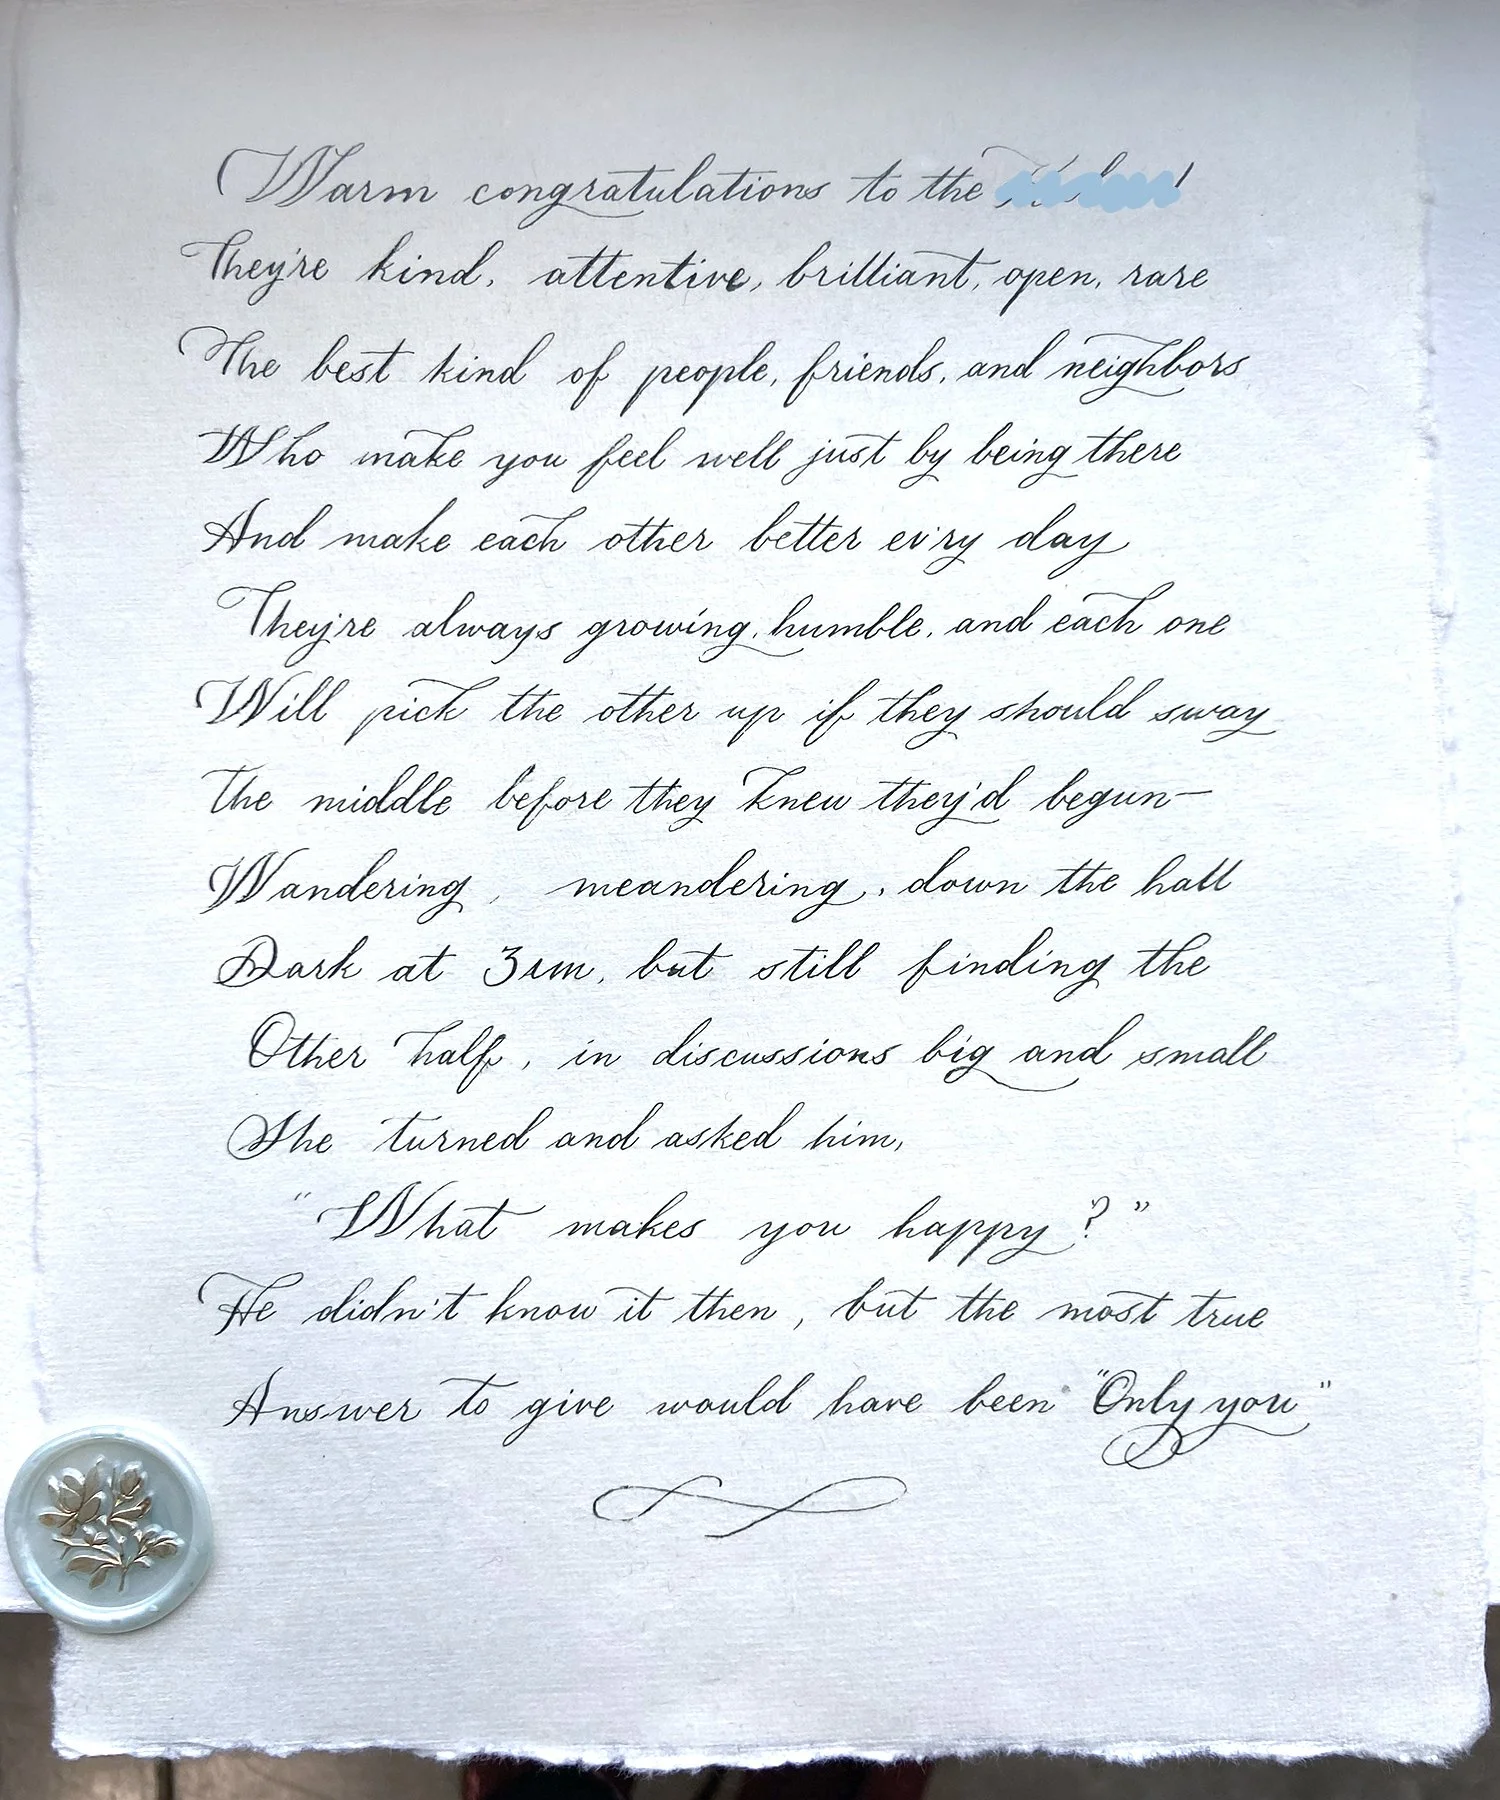 Warm congratulations to the
They're kind, attentive, brilliant, open, rare
The best kind of people, friends, and neighbors
Who make you feel well just by being there
And make each other better ev'ry day
They're always growing, humble, and each one
Will pick the other up if they should sway
The middle before they knew they'd begun—
Wandering, meandering, down the hall
Dark at 3am, but still finding the
Other half, in discussions big and small
She turned and asked him,
"What makes you happy?"
He didn't know it then, but the most true
Answer to give would have been "Only you"